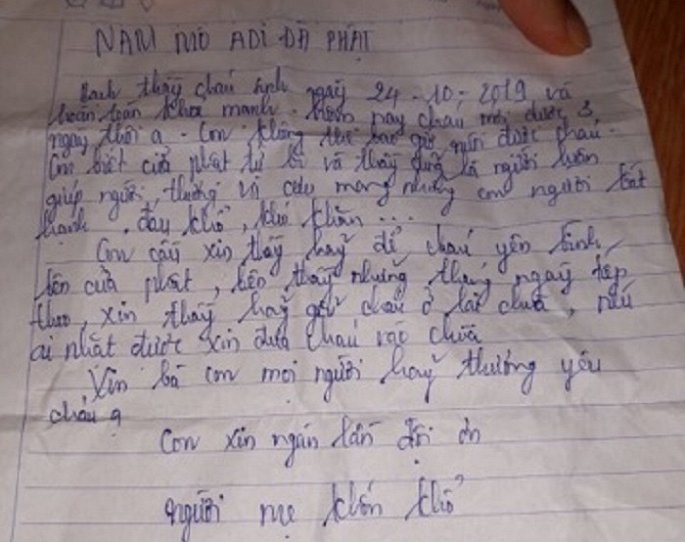 NAM MÔ ADI ĐÀ PHẬT
Bạch thầy cháu sinh ngày 24-10-2019 và
hoàn toàn khỏe mạnh. hôm nay cháu mới được 3
ngày thôi ạ. Con không thể bao giờ nuôi được cháu.
Con biết cửa phật từ bi và thầy cũng là người luôn
giúp người, thương và cưu mang những con người bất
hạnh, đau khổ, khó khăn...
Con cầu xin thầy hãy để cháu yên bình
bên cửa phật, bên thầy những tháng ngày tiếp
theo, xin thầy hãy giữ cháu ở lại chùa, nếu
ai nhặt được xin đưa cháu vào chùa
Xin bà con mọi người hãy thương yêu
cháu ạ
Con xin ngàn lần đội ơn
người mẹ khốn khổ